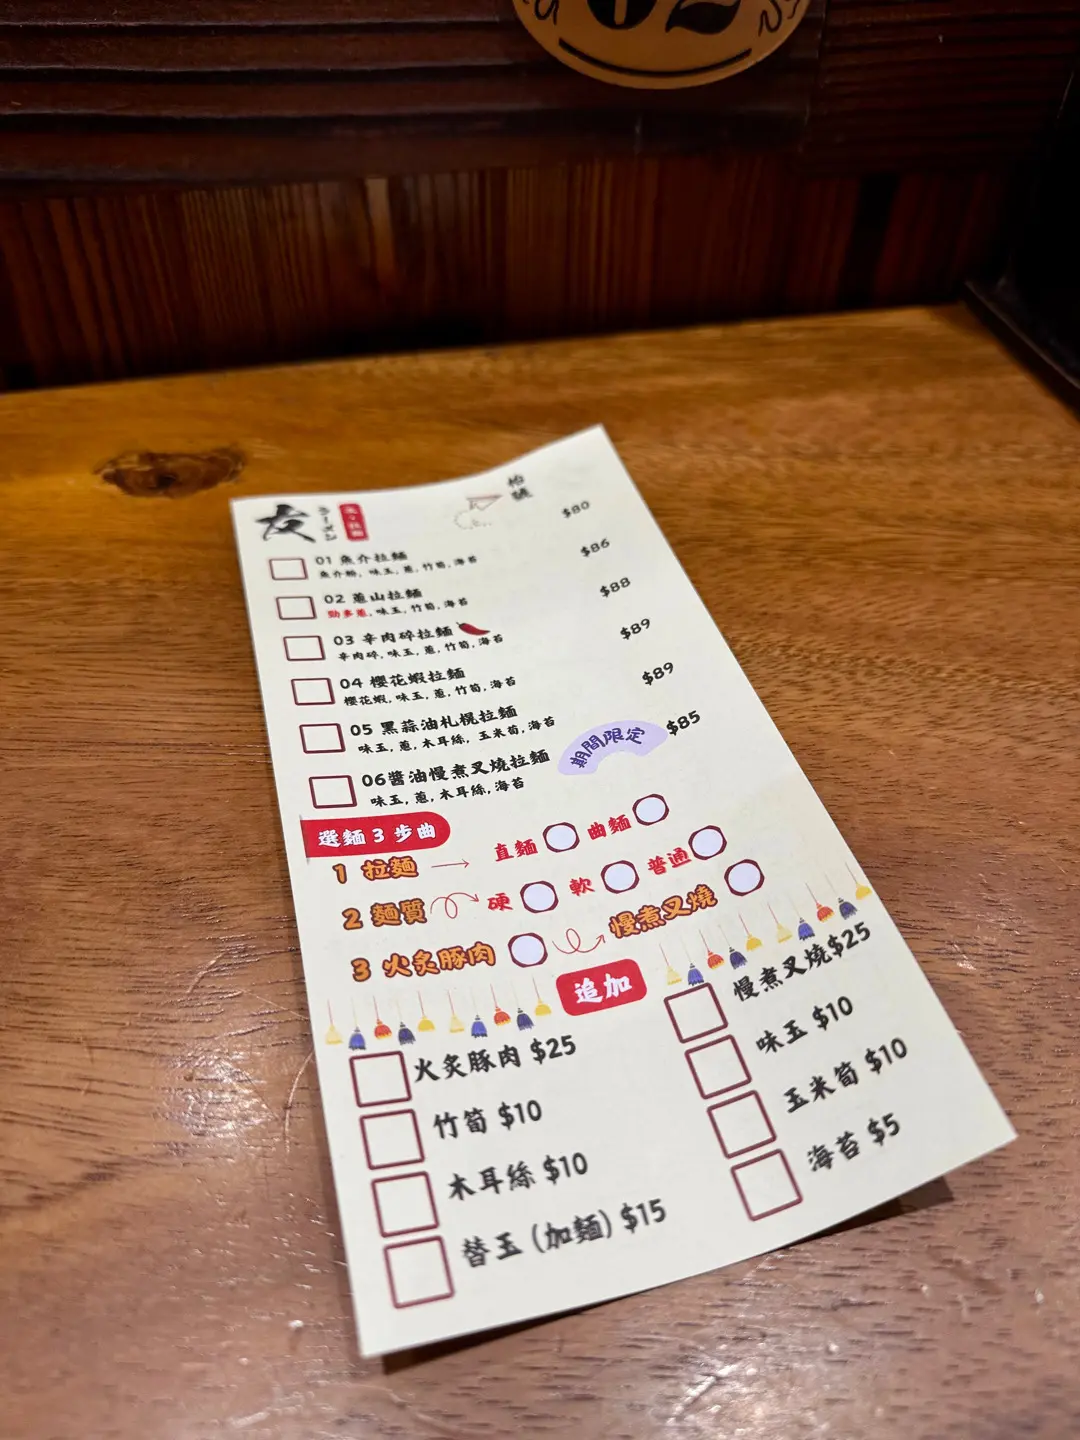 友 ラーメン
枱號
01 魚介拉麵 $80
魚介粉, 味玉, 蔥, 竹筍, 海苔
02 蔥山拉麵 $86
勁多蔥, 味玉, 竹筍, 海苔
03 辛肉碎拉麵 $88
辛肉碎, 味玉, 蔥, 竹筍, 海苔
04 櫻花蝦拉麵 $89
櫻花蝦, 味玉, 蔥, 竹筍, 海苔
05 黑蒜油札榥拉麵 $89
味玉, 蔥, 木耳絲, 玉米筍, 海苔
06醬油慢煮叉燒拉麵 期間限定 $85
味玉, 蔥, 木耳絲, 海苔
選麵 3 步曲
1 拉麵 直麵 曲麵
2 麵質 硬 軟 普通
3 火炙豚肉 慢煮叉燒
追加
火炙豚肉 $25 慢煮叉燒$25
竹筍 $10 味玉 $10
木耳絲 $10 玉米筍 $10
替玉 (加麵) $15 海苔 $5